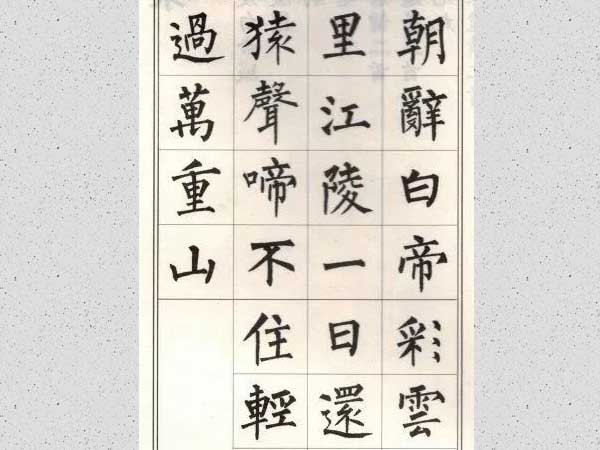 朝辭白帝彩雲
里江陵一日還
猿聲啼不住輕
過萬重山